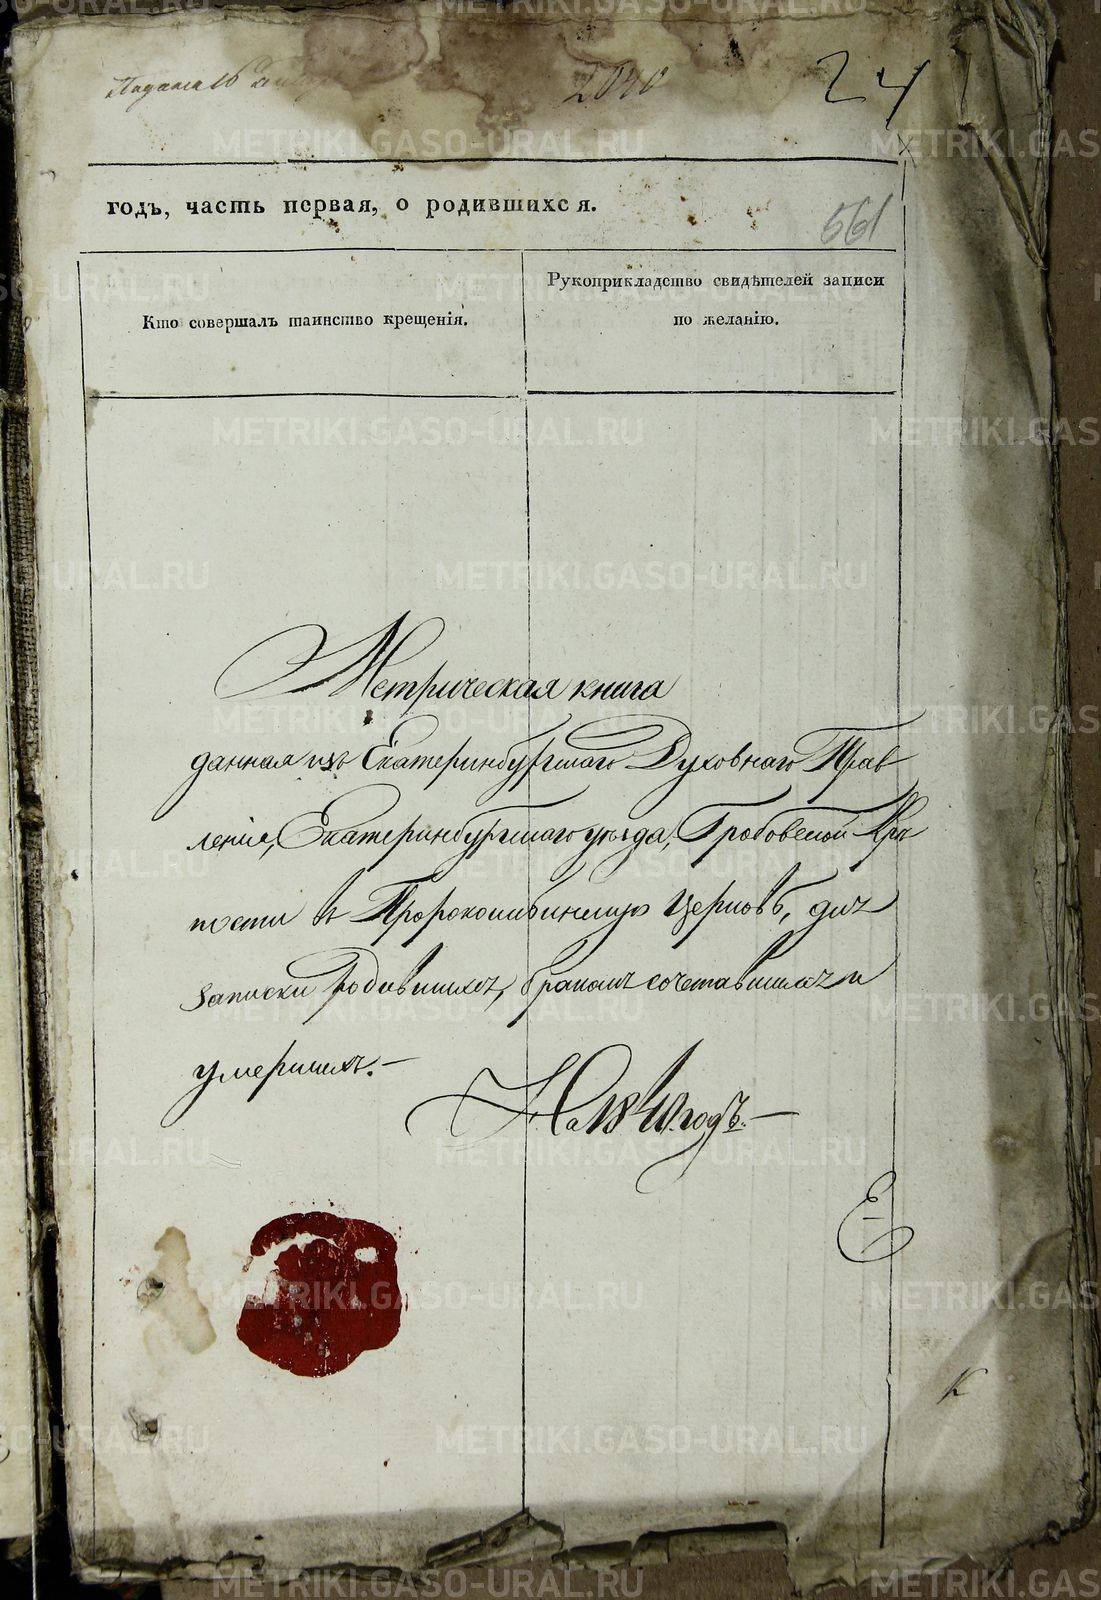 Подана 16
2040
24
годъ, часть первая, о родившихся.
561
Кто совершалъ таинство крещенія.
Рукоприкладство свидѣтелей записи
по желанію.
Метрическая книга
данная изъ Екатеринбургскаго Духовнаго Прав
ленія, Екатеринбургскаго уѣзда, Гробовской Крѣ
пости въ Пророкоильинскую церковь, для
записки родившихся, бракомъ сочетавшихся и
умершихъ.
На 1840 годъ.
METRIKI.GASO-URAL.RU